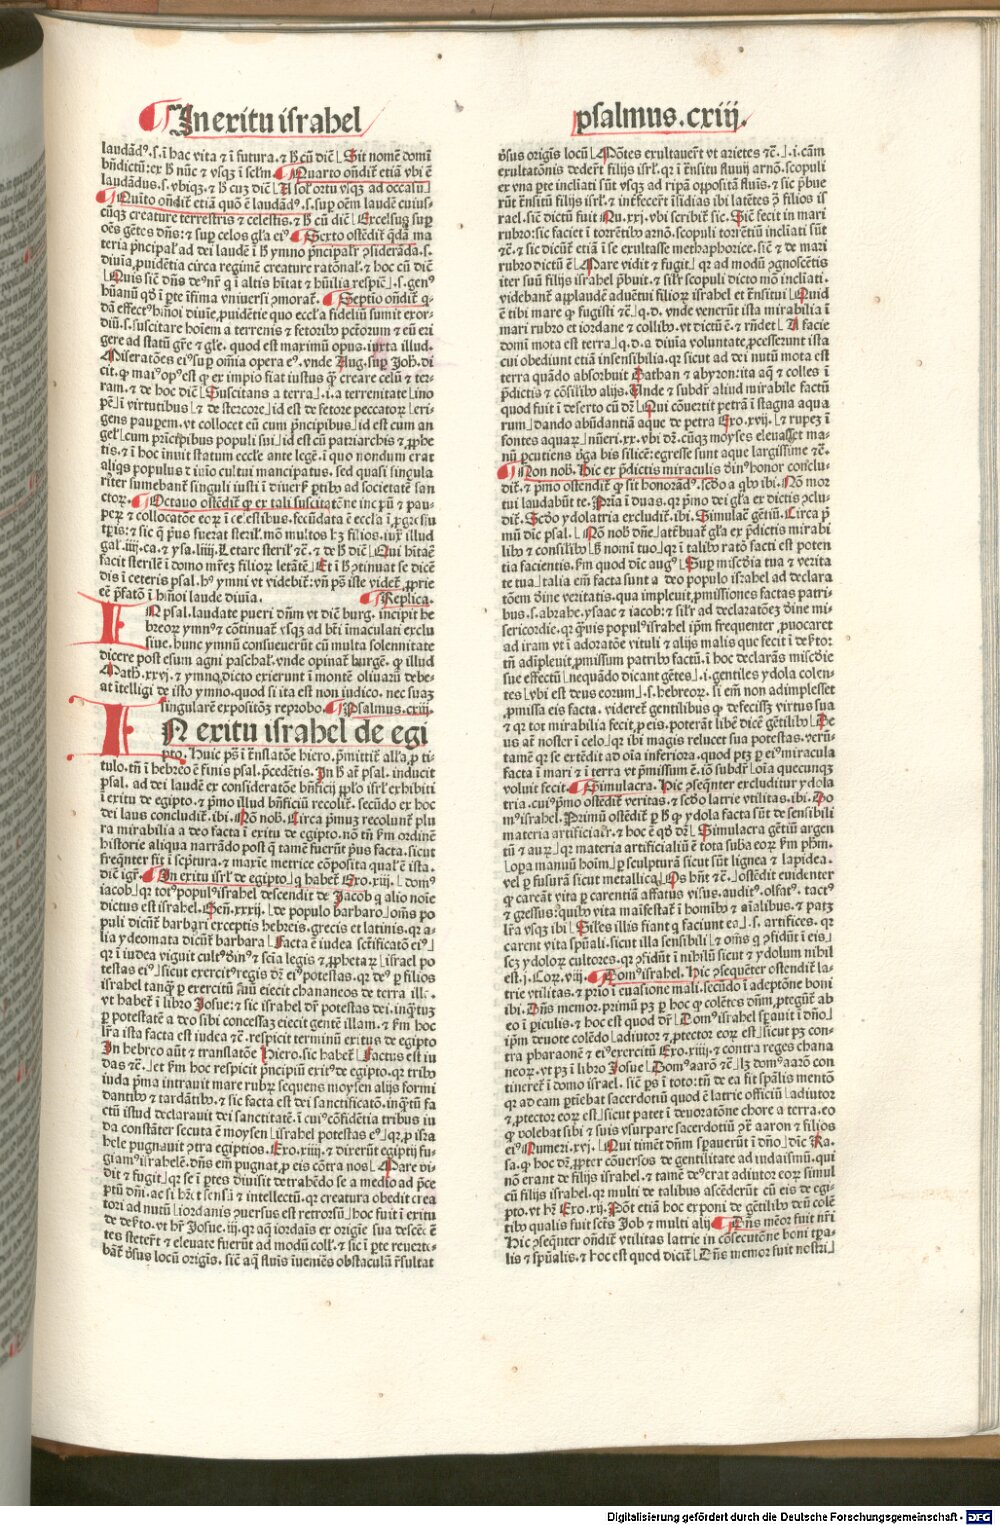 In exitu israhel
psalmus.cxiij.
laudādꝰ.s.ī hac vita ⁊ ī futura.⁊ h̄ cū dic̄ Sit nomē domī
bn̄dictū:ex h̄ nūc ⁊ vsqȝ ī sc̄lm. Quarto on̄dit̄ etiā vbi ē
laudādus.s.vbiqȝ.⁊ h̄ cuȝ dic̄ A sol' ortu vsqȝ ad occasū
Quīto on̄dit̄ etiā quō ē laudādꝰ.s.sup oēm laudē cuius-
cūqȝ creature terrestris ⁊ celestis.⁊ h̄ cū dic̄ Excelsus sup
oēs gētes dn̄s:⁊ sup celos gl'a eiꝰ Sexto ostēdit̄ q̄dā ma
teria p̄ncipal' ad dei laudē ī h̄ ymno p̄ncipalr' ꝯsiderāda.s.
diuīa ꝓuidētia circa regimē creature ratōnal'.⁊ hoc cū dic̄
Quis sic̄ dn̄s deꝰ nr̄ q̄ ī altis hītat ⁊ hūilia respic̄ .s.genꝰ
hūanū qd̄ ī p̄te īfima vniuersi ꝯmorat̄. Septīo on̄dit̄ q̄-
dā effectꝰ hīꝰmōi diuīe ꝓuidētie quo eccl'a fideliū sumit exor-
diū.s.suscitare hoīem a terrenis ⁊ fetorib' pctōrum ⁊ eū eri
gere ad statū gr̄e ⁊ gl'e. quod est maximū opus.iuxta illud.
Miseratōes eiꝰ sup omīa opera eꝰ.vnde Aug. sup Joh. di
cit.ꝙ maiꝰ opꝰ est ꝙ ex impio fiat iustus ꝙ creare celū ⁊ ter-
ram.⁊ de hoc dic̄ Suscitans a terra .i.a terrenitate ino
pē ī virtutibus ⁊ de stercore id est de fetore peccatorꝝ eri-
gens pauꝑem.vt collocet eū cum p̄ncipibus id est cum an
gel' cum prīcipibus populi sui id est cū patriarchis ⁊ ꝓphe
tis.⁊ ī hoc īnuit statum eccl'e ante legē.ī quo nondum erat
aliq̄s populus dīuīo cultui mancipatus.sed quasi singula
rīter sumebant̄ singuli iusti ī diuerſ' ꝑtib' ad societatē san
ctorꝝ. Octauo ostēdit̄ ꝙ ex tali suscitatōne inc̄pxū ⁊ pau-
perꝝ ⁊ collocatōe eorꝝ ī celestibus.fecūdata ē eccl'a ī ꝓgressu
tp̄ris:⁊ sic q̄ p̄us fuerat steril'.mō multos hȝ filios.iuxͣ illud
gal.iiij.ca.⁊ ysa.liiij.Letare steril' ⁊c̄.⁊ de h̄ dic̄ Qui hītaē
facit sterilē ī domo mr̄eȝ filiorꝝ letātē Et ī h̄ ꝯtinuat se dicē
dis ī ceteris psal.hꝰ ymni vt videbit̄:vn̄ pꝰ iste videt̄ ꝓprie
eē p̄fatō ī hꝰmōi laude diuīa. Replica.
IN psal.laudate pueri dn̄m vt dic̄ burg. incipit he
breorꝝ ymnꝰ ⁊ cōtinuat̄ vsqȝ ad bt̄i īmaculati exclu
siue.hunc ymnū consueuerūt cū multa solennitate
dicere post esum agni paschal'.vnde opinat̄ burgē. ꝙ illud
Math.xxvj.⁊ ymno ꝯdicto exierunt ī montē oliuarū debe-
at ītelligi de isto ymno.quod si ita est non īudico.nec suaȝ
singularē expositōȝ reprobo. Psalmus.cxiij.
IN exitu israhel de egi
pto.Huic pꝰ ī trn̄slatōe hiero.p̄mittit̄ all'a ꝓ ti-
tulo.tn̄ ī hebreo ē finis psal.p̄cedētis.In h̄ aūt psal. inducit
psal. ad dei laudē ex consideratōe bn̄ficij ppl'o isr'l exhibiti
ī exitu de egipto.⁊ p̄mo illud bn̄ficiū recolit̄.secūdo ex hoc
dei laus concludit̄.ibi.Nō nob̄.Circa p̄muȝ recolunt̄ plu
ra mirabilia a deo facta ī exitu de egipto.nō tn̄ ẜm ordinē
historie aliqua narrādo post q̄ tamē fuerūt p̄us facta.sicut
freq̄nter fit ī sc̄ptura.⁊ maxīe metrice cōposita qual' ē ista.
dic̄ igr̄. In exitu isr'l de egipto q̄ habet̄ Exo.xiij. domꝰ
iacob qr totꝰ populꝰ israhel descendit de Jacob q alio noīe
dictus est israhel.Gen̄.xxxij. de populo barbaro om̄s po
puli dicūt̄ barbari exceptis hebreis.grecis et latinis.qr a-
lia ydeomata dicūt̄ barbara Facta ē iudea sc̄tificatō eiꝰ
qr ī iudea viguit cultꝰ diuīꝰ ⁊ sc̄ia legis ⁊ ꝓphetarꝝ israel po
testas eiꝰ sicut exercitꝰ regis dr̄ eiꝰ potestas.qr deꝰ ꝑ filios
israhel tanq̄ ꝑ exercitū suū eiecit chananeos de terra ill.
vt habet̄ ī libro Josue:⁊ sic israhel dr̄ potestas dei.inq̄tuȝ
ꝑ potestatē a deo sibi concessaȝ eiecit gentē illam.⁊ ẜm hoc
lr̄a ista facta est iudea ⁊c̄.respicit terminū exitus de egipto
In hebreo aūt ⁊ translatōe Hiero.sic habet̄ Factus est iu
das ⁊c̄. et ẜm hoc respicit p̄ncipiū exitꝰ de egipto.qr tribꝰ
iuda p̄ma intrauit mare rubrꝝ sequens moysen alijs formi
dantib' ⁊ tardātib'.⁊ sic facta est dei sanctificatō.inq̄tū fa
ctū istud declarauit dei sanctitatē.ī cuiꝰ cōfidētia tribus iu
da constāter secuta ē moysen israhel potestas eꝰ qr ꝓ isra
hele pugnauit ꝯtra egiptios.Exo.xiiij.⁊ dixerūt egiptij fu-
giamꝰ israhelē.dn̄s eīm pugnat ꝓ eis cōtra nos Mare vi-
dit ⁊ fugit qr se ī ꝑtes diuisit detrahēdo se a medio ad p̄ce
ptū dn̄i.ac si hr̄et sensū ⁊ intellectū.qr creatura obedit crea
tori ad nutū iordanis ꝯuersus est retrorsū hoc fuit ī exitu
de de͂kto.vt hr̄ Josue.iij.qr aq̄ iordais ex origīe sua descē.ē
tes stetert̄ ⁊ eleuate fuerūt ad modū coll'.⁊ sic ī ꝑte reuerte-
bāt̄ v̄sus locū origīs.sic̄ aq̄ fluīs īueniēs obstaculū r̄sultat
v̄sus origīs locū Mōtes exultauert̄ vt arietes ⁊c̄. .i.cām
exultatōnis dedert̄ filijs isr'l.qr ī trn̄situ fluuij arnō.scopuli
ex vna ꝑte incliati sūt vsqȝ ad ripā oppositā fluīs.⁊ sic p̄bue
rūt trn̄sitū filijs isr'l.⁊ īnfecert̄ īsidias ibi latētes ꝯ filios is
rael.sic̄ dictū fuit Nu.xxj.vbi scribit̄ sic.Sic̄ fecit in mari
rubro:sic faciet ī torrētib' arnō.scopuli torrētiū incliati sūt
⁊c̄.⁊ sic dicūt̄ etiā ī se exultasse methaphorice.sic̄ ⁊ de mari
rubro dictū ē Mare vidit ⁊ fugit qr ad modū ꝯgnoscētis
iter suū filijs israhel p̄buit.⁊ sil'r scopuli dicto mō incliati.
videbant̄ applaudē aduētui filiorꝝ israhel et trn̄situi Quid
ē tibi mare ꝙ fugisti ⁊c̄ .q.d. vnde venerūt ista mirabilia ī
mari rubro et iordane ⁊ collib'.vt dictū ē.⁊ rn̄det A facie
domī mota est terra q.d.a diuīa voluntate ꝓcesserunt ista
cui obediunt etiā insensibilia.qr sicut ad dei nutū mota est
terra quādo absorbuit Dathan ⁊ abyron:ita aq̄ ⁊ colles ī
p̄dictis ⁊ cōsilib' alijs.Unde ⁊ subdr̄ aliud mirabile factū
quod fuit ī deserto cū dr̄ Qui cōuertit petrā ī stagna aqua
rum dando abūdantiā aque de petra Exo.xvij. ⁊ rupeȝ ī
fontes aquarꝝ nūeri.xx.vbi dr̄.cūqȝ moyses eleuasset ma-
nū ꝑcutiens v̄ga bis silicē:egresse sunt aque largissime ⁊c̄.
Non nob̄.Hic ex p̄dictis miraculis diuīꝰ honor conclu-
dit̄.⁊ p̄mo ostendit̄ ꝙ sit honorādꝰ.sc̄do a qb' ibi.Nō mor
tui laudabūt te.Prīa ī duas.qr p̄mo dei gl'a ex dictis ꝯclu-
dit̄.Sc̄do ydolatria excludit̄.ibi.Simulac̄ gētiū.Circa p̄
mū dic̄ psal. Nō nob̄ dn̄e attbuat̄ gl'a ex p̄dictis mirabi
lib' ⁊ consilib' h̄ nomī tuo qr ī talib' ratō facti est poten
tia facientis.ẜm quod dic̄ augꝰ Sup mīscd̄ia tua ⁊ verita
te tua talia eīm facta sunt a deo populo israhel ad declara
tōem diuīe veritatis.qua impleuit ꝓmissiones factas patri-
bus.s.abrahe.ysaac ⁊ iacob:⁊ sil'r ad declaratōeȝ diuīe mi-
sericordie.qr q̄uis populꝰ israhel ip̄m frequenter ꝓuocaret
ad iram vt ī adoratōe vituli ⁊ alijs malis que fecit ī de͂ktor
tn̄ adīpleuit ꝓmissum patrib' factū.ī hoc declarās mīscd̄ie
sue effectū nequādo dicant gētes .i.gentiles ydola colen-
tes vbi est deus eorum .s.hebreorꝝ.si eīm non adimplesset
ꝓmissa eis facta.videret̄ gentilibus ꝙ defecisȝ virtus sua
⁊ qr tot mirabilia fecit ꝓ eis.poterāt libē dice gētilib' De
us aūt noster ī celo qr ibi magis relucet sua potestas.verū-
tamē qr se extēdit ad oīa inferiora.quod ptȝ ꝑ eiꝰ miracula
facta ī mari ⁊ ī terra vt p̄missum ē.iō subdr̄ oīa quecunqȝ
voluit fecit. Simulacra.Hic ꝯseq̄nter excluditur ydola
tria.cuiꝰ p̄mo ostēdit̄ veritas.⁊ sc̄do latrie vtilitas.ibi.Do
mꝰ israhel.Primū ostēdit̄ ꝑ h̄ ꝙ ydola facta sūt de sensibili
materia artificialr'.⁊ hoc ē qd̄ dr̄ Simulacra gētiū argen
tū ⁊ aurꝝ qr materia artificialiū ē tota suba eorꝝ ẜm phm̄.
opa manuū hoīm ꝑ sculpturā sicut sūt lignea ⁊ lapidea.
vel ꝑ fusurā sicut metallica Os hn̄t ⁊c̄. ostēdit euidenter
ꝙ careāt vita ꝑ carentiā affatus visus.auditꝰ.olfatꝰ.tactꝰ
⁊ gressus:quib' vita maīfestat̄ ī homīb' ⁊ aīalibus.⁊ patȝ
lr̄a vsqȝ ibi Siles illis fiant q̄ faciunt ea .s.artifices.qr
carent vita spūali.sicut illa sensibili ⁊ om̄s q̄ ꝯfidūt ī eis
scȝ ydolorꝝ cultores.qr ꝯfidūt ī nihilū sicut ⁊ ydolum nihil
est.j.Corꝝ.viij. Domꝰ israhel.Hic ꝯsequēter ostendit̄ la-
trie vtilitas.⁊ prīo ī euasione mali.secūdo ī adeptōne boni
ibi.Dn̄s memor.primū pȝ ꝑ hoc ꝙ colētes dn̄m.ꝓtegūt̄ ab
eo ī piculis.⁊ hoc est quod dr̄ Domꝰ israhel sꝑauit ī dn̄o
ip̄m deuote colēdo adiutor ⁊ ꝓtector eorꝝ est sicut pȝ con-
tra pharaonē ⁊ eiꝰ exercitū Exo.xiiij.⁊ contra reges chana
neorꝝ.vt pȝ ī libro Josue Domꝰ aarō ⁊c̄ lȝ domꝰ aarō con
tineret̄ ī domo israel.sic̄ pꝰ ī toto:tn̄ de ea fit spālis mentō
qr ad eam ꝑtīebat sacerdotiū quod ē latrie officiū adiutor
⁊ ꝓtector eorꝝ est sicut patet ī deuoratōne chore a terra.eo
ꝙ volebat sibi ⁊ suis vsurpare sacerdotiū ꝯtͣ aaron ⁊ filios
eiꝰ Numeri.xvj. Qui timēt dn̄m sꝑauerūt ī dn̄o dic̄ Ra-
sa.ꝙ hoc dr̄ ꝓpter cōuersos de gentilitate ad iudaismū.qui
nō erant de filijs israhel.⁊ tamē deꝰ erat adiutor eorꝝ simul
cū filijs israhel.qr multi de talibus ascēderūt cū eis de egi-
pto.vt hr̄ Exo.xij.Pōt etiā hoc exponi de gētilib' deū colē
tib' qualis fuit sct̄s Job ⁊ multi alij Dn̄s memor fuit nr̄i
Hic ꝯseq̄nter on̄dit̄ vtilitas latrie in cōsecutōne boni tpa-
lis ⁊ spūalis.⁊ hoc est quod dicit̄ Dn̄s memor fuit nostri
Digitalisierung gefördert durch die Deutsche Forschungsgemeinschaft - DFG